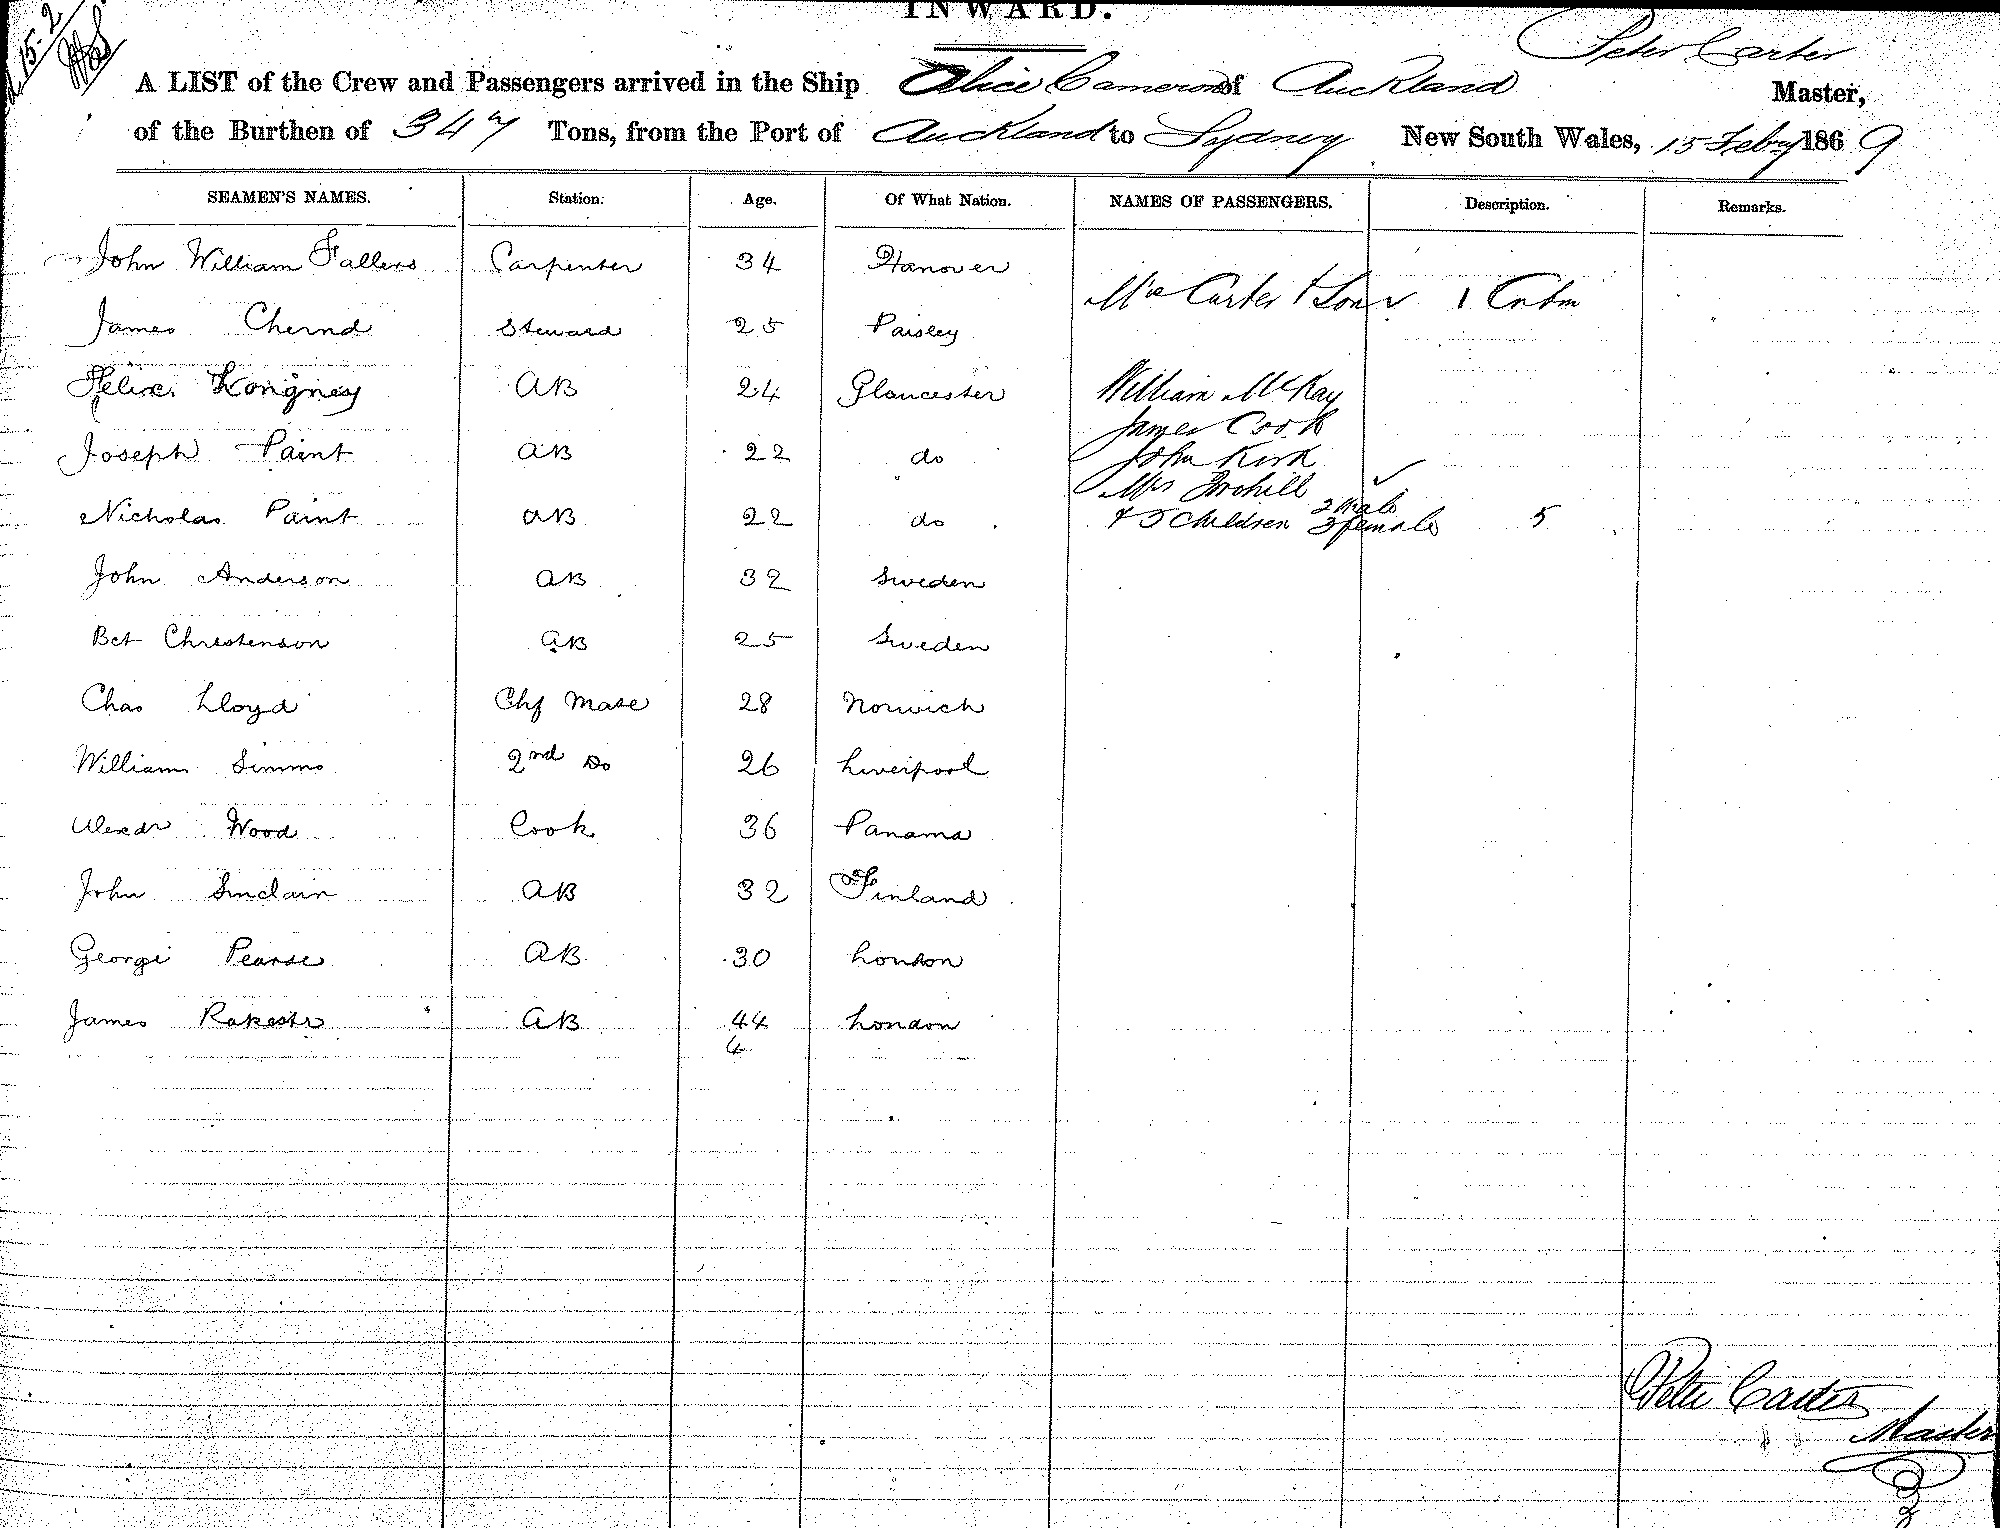 INWARD.
15-2
Peter Carter
A LIST of the Crew and Passengers arrived in the Ship Alice Cameron of Auckland Master,
of the Burthen of 347 Tons, from the Port of Auckland to Sydney New South Wales, 15 Feby 1869
SEAMEN'S NAMES. Station. Age. Of What Nation. NAMES OF PASSENGERS. Description. Remarks.
John William Fallers Carpenter 34 Hanover
Carter + Son 1 Cabin
James Steward 25 Paisley
Felix Longney AB 24 Gloucester William McKay
James Cook
Joseph Paint AB 22 do John Kirk
Mrs
Nicholas Paint AB 22 do + 5 children 2 male 3 female 5
John Anderson AB 32 Sweden
Bet Chrestenson AB 25 Sweden
Chas Lloyd Chf Mate 28 Norwich
William Simms 2nd Do 26 Liverpool
Alexdr Wood Cook 36 Panama
John Sinclair AB 32 Finland
George Pearse AB 30 London
James AB 44 London
4
Peter Carter
Master